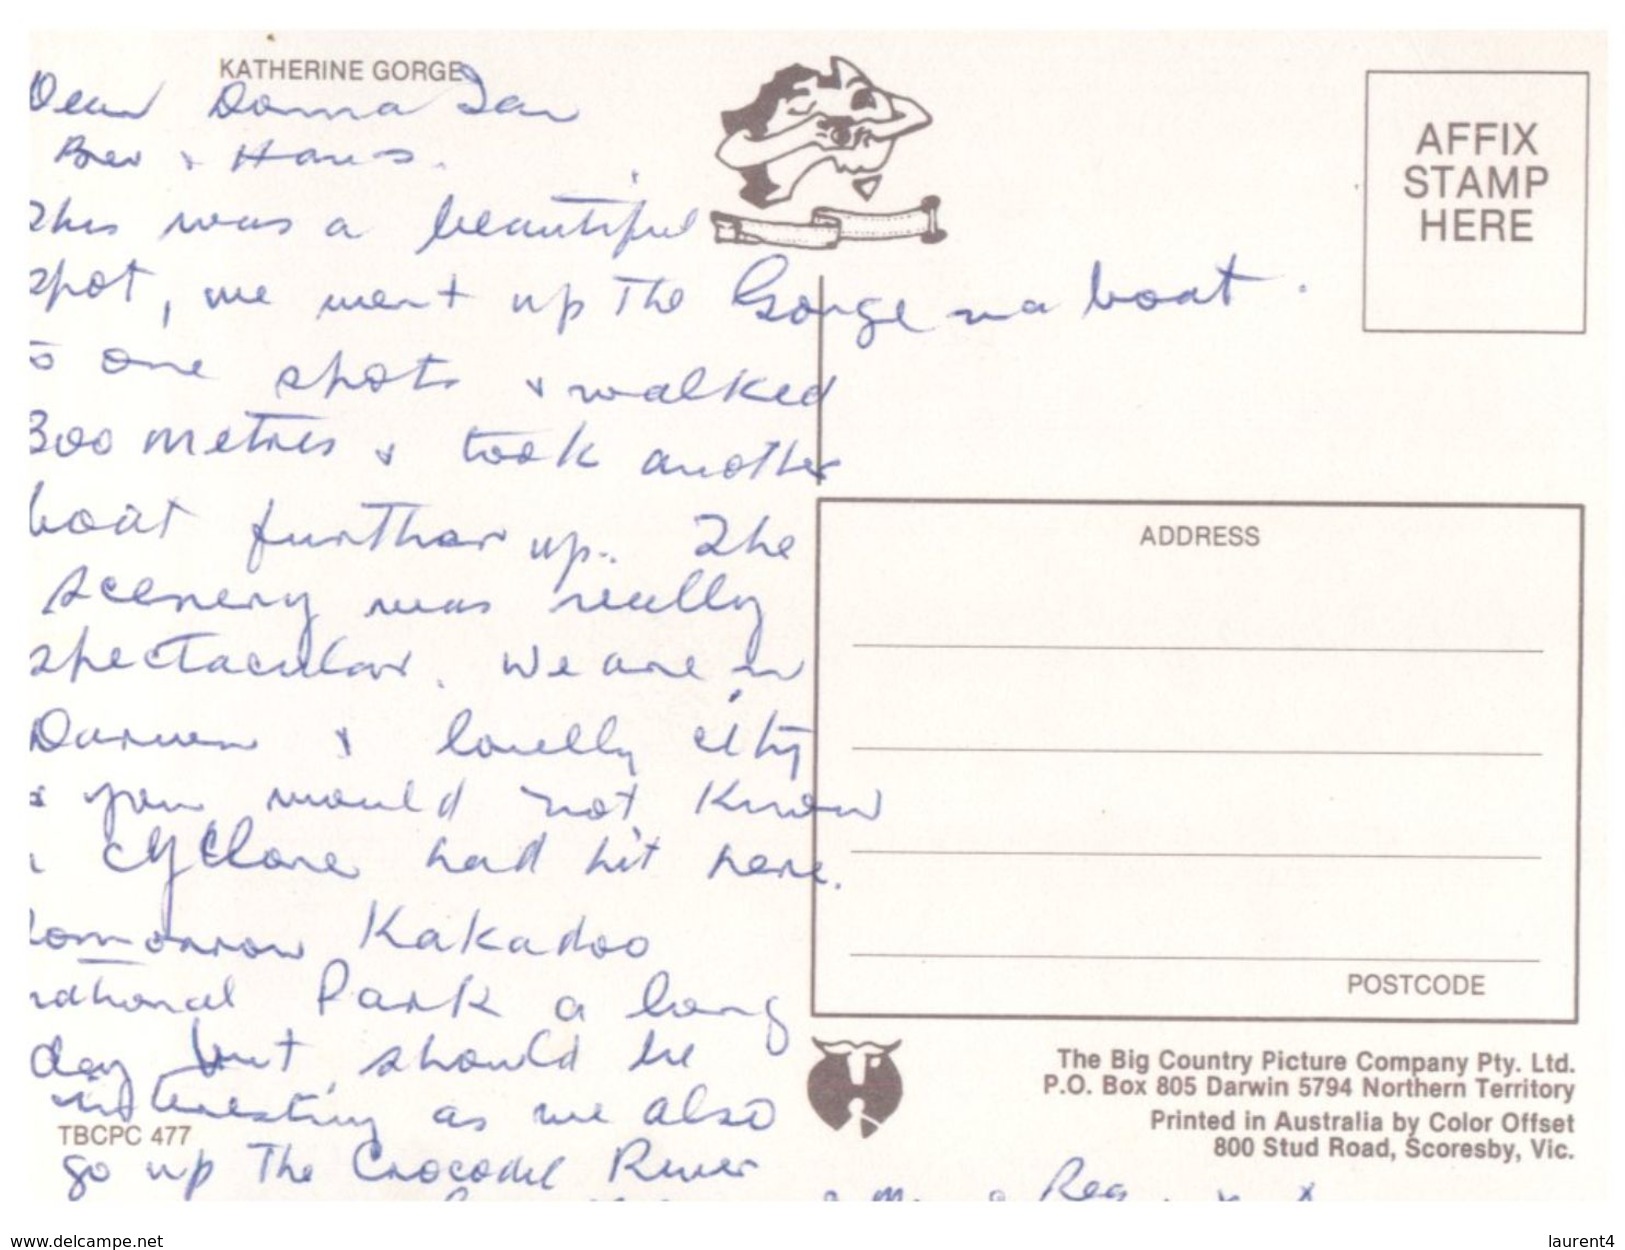 KATHERINE GORGE
Dear Donna Ian
Bev & Hans.
This was a beautiful
spot, we went up the Gorge in a boat.
to one spots & walked
300 metres & took another
boat further up. The
scenery was really
spectacular. We are in
Darwen & lovelly city
& you would not know
a cyclone had hit here.
Tomorrow Kakadoo
national Park a long
day but should be
interesting as we also
TBCPC 477
go up The Crocodile River
Reg
AFFIX
STAMP
HERE
ADDRESS
POSTCODE
The Big Country Picture Company Pty. Ltd.
P.O. Box 805 Darwin 5794 Northern Territory
Printed in Australia by Color Offset
800 Stud Road, Scoresby, Vic.
www.delcampe.net
laurent4